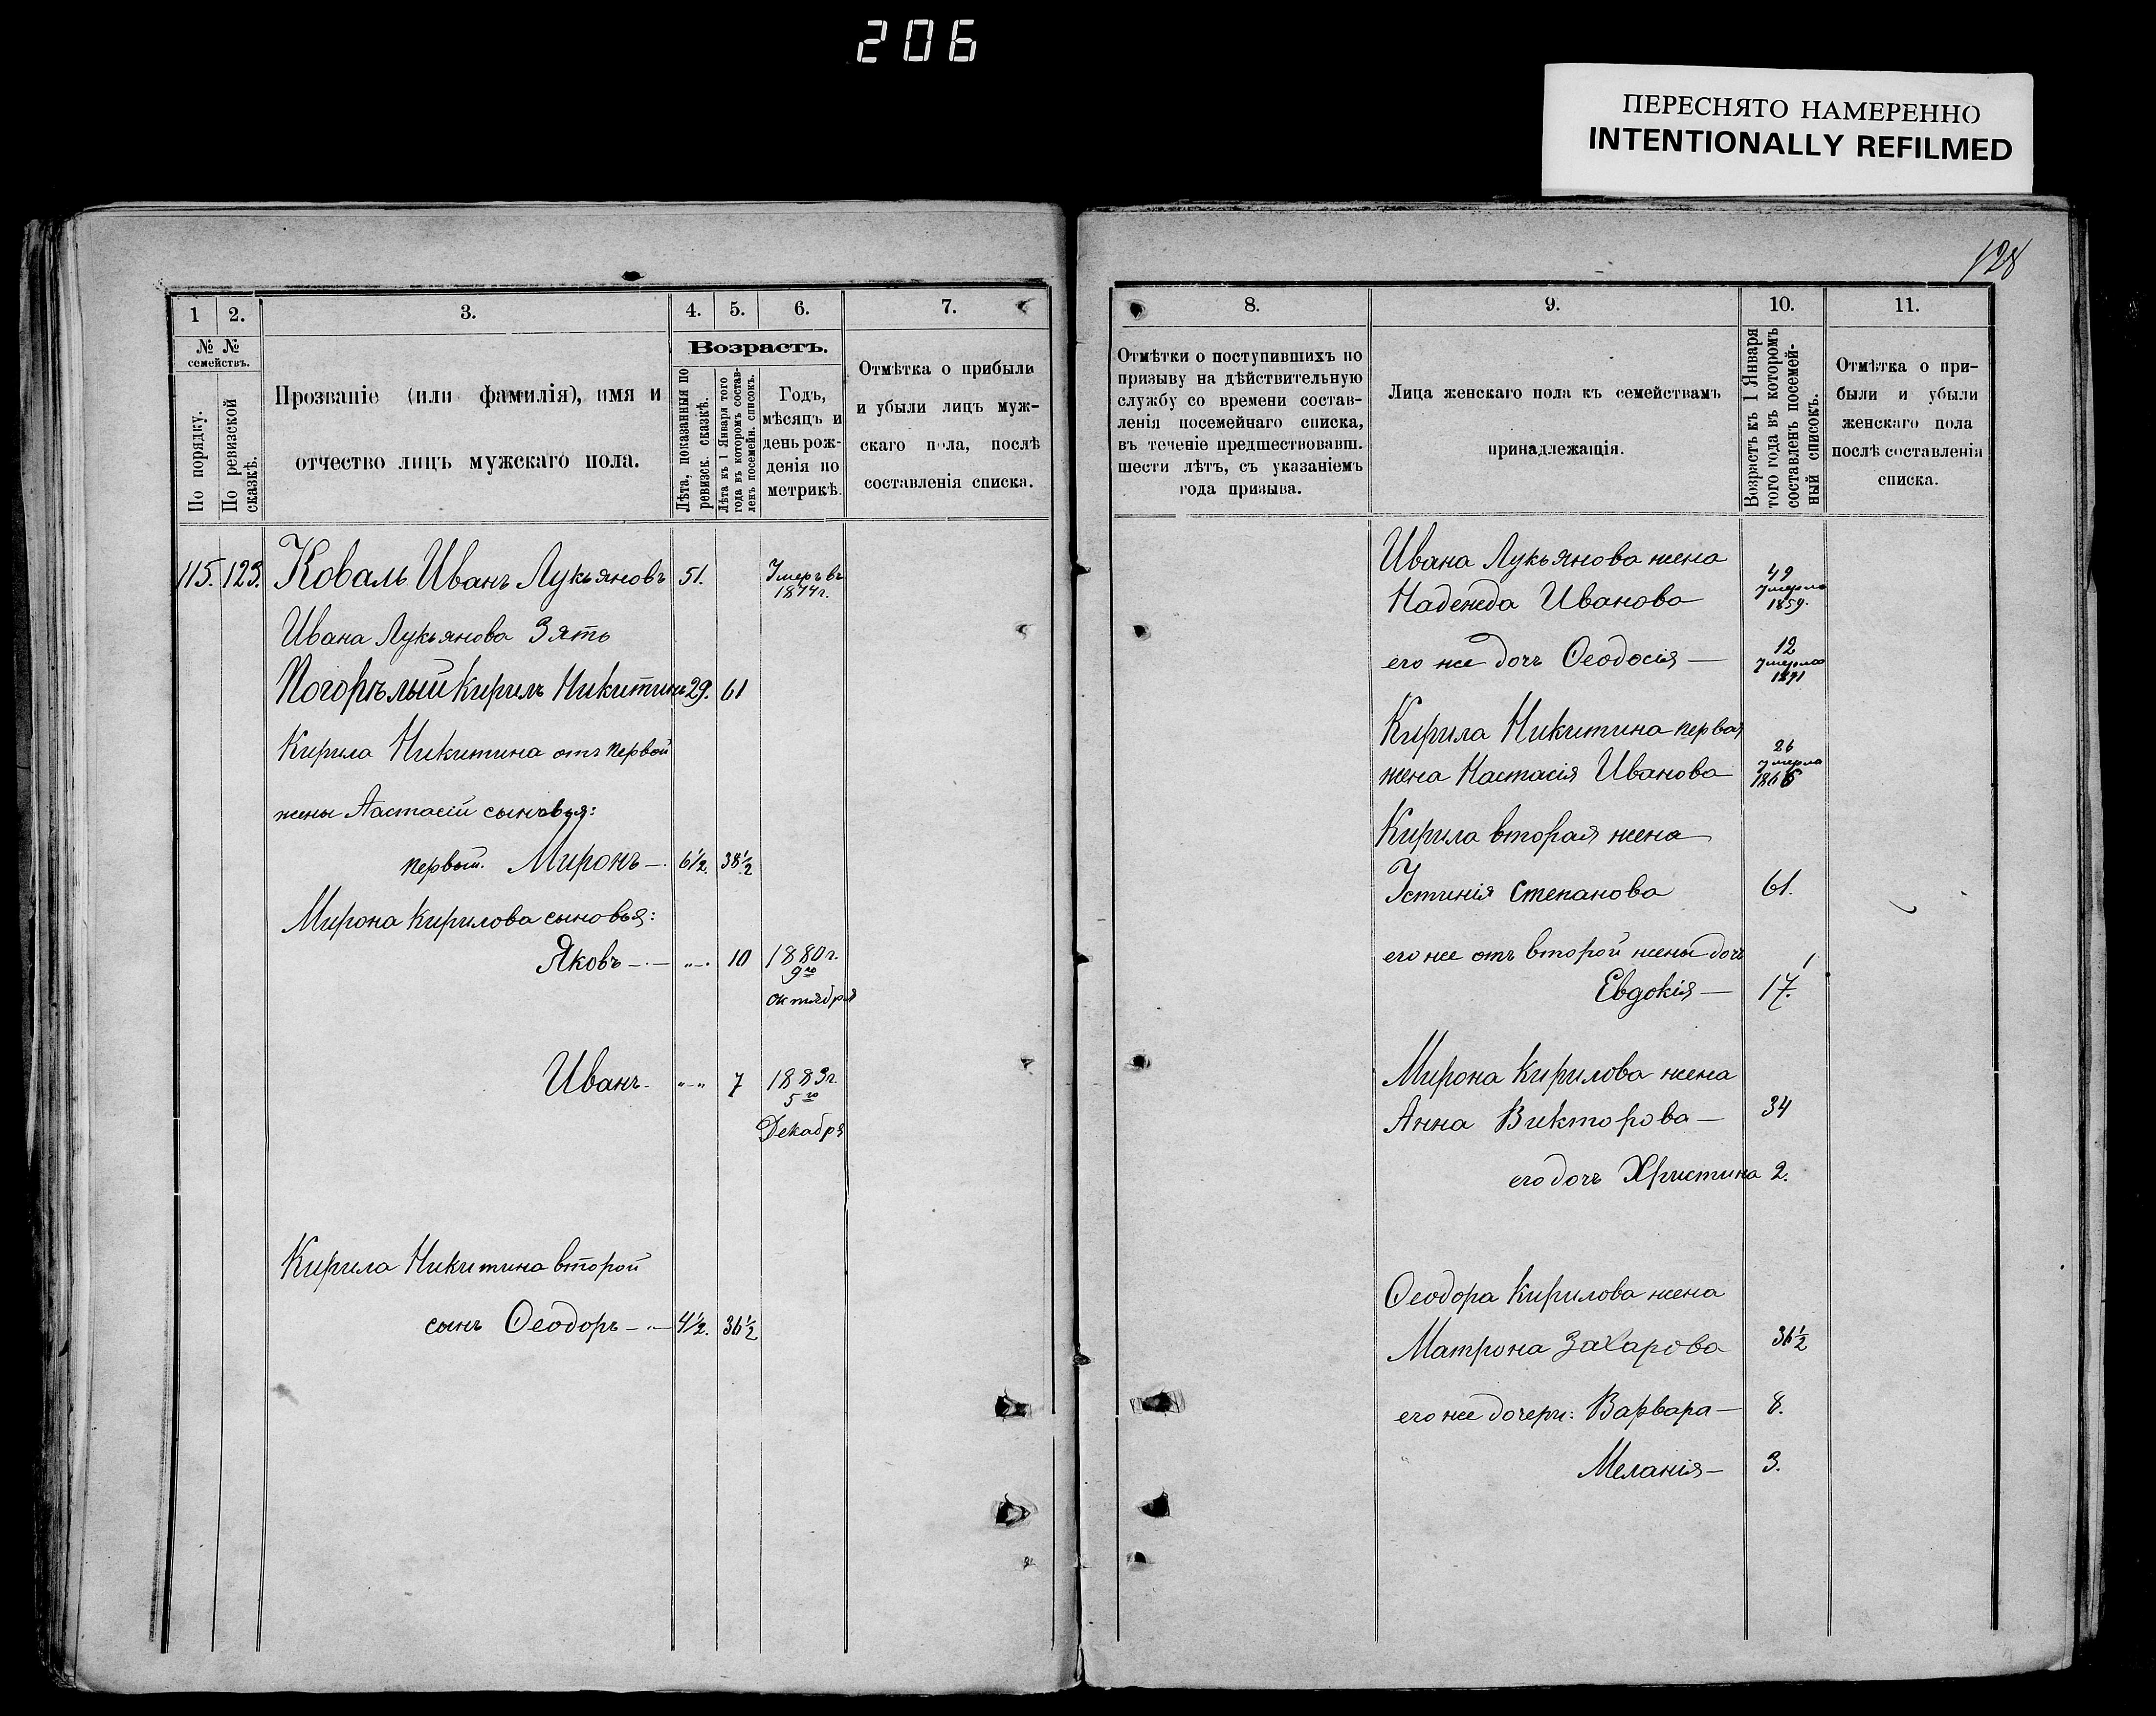 206
ПЕРЕСНЯТО НАМЕРЕННО
INTENTIONALLY REFILMED
128
1
2.
3.
4.
5.
6.
7.
№ №
семействъ.
По порядку.
По ревизской сказкѣ.
Прозваніе (или фамилія), имя и
отчество лицъ мужскаго пола.
Возрастъ.
Лѣта, показанныя по ревизск. сказкѣ.
Лѣта къ 1 Января того года въ которомъ составленъ посемейн. списокъ.
Годъ,
мѣсяцъ и
день рож-
денія по
метрикѣ.
Отмѣтка о прибыли
и убыли лицъ муж-
скаго пола, послѣ
составленія списка.
115. 123. Коваль Иванъ Лукьяновъ 51. Умеръ въ
1874г.
Ивана Лукьянова Зять
Погорѣлый Кирилъ Никитинъ 29. 61
Кирила Никитина отъ первой
жены Настасіи сыновья:
первый. Миронъ —. 6½. 38½
Мирона Кирилова сыновья:
Яковъ —.— „—. 10 1880г.
9го
октября
Иванъ. „—„ 7 1883г.
5го
Декабря
Кирила Никитина второй
сынъ Ѳеодоръ —.— 4½. 36½
8.
9.
10.
11.
Отмѣтки о поступившихъ по
призыву на дѣйствительную
службу со времени состав-
ленія посемейнаго списка,
въ теченіе предшествовавш.
шести лѣтъ, съ указаніемъ
года призыва.
Лица женскаго пола къ семействамъ
принадлежащія.
Возрастъ къ 1 Января
того года въ которомъ
составленъ посемей-
ный списокъ.
Отмѣтка о при-
были и убыли
женскаго пола
послѣ составленія
списка.
Ивана Лукьянова жена
Надежда Иванова 49
умерла
1859.
его же дочь Ѳеодосія — 12
умерла
1871
Кирила Никитина первая
жена Настасія Иванова 26
умерла
1866
Кирила вторая жена
Устинія Степанова 61.
его же отъ второй жены дочь
Евдокія — 17.
Мирона Кирилова жена
Анна Викторова — 34
его дочь Христина 2.
Ѳеодора Кирилова жена
Матрона Захарова 36½
его же дочери: Варвара — 8.
Меланія — 3.